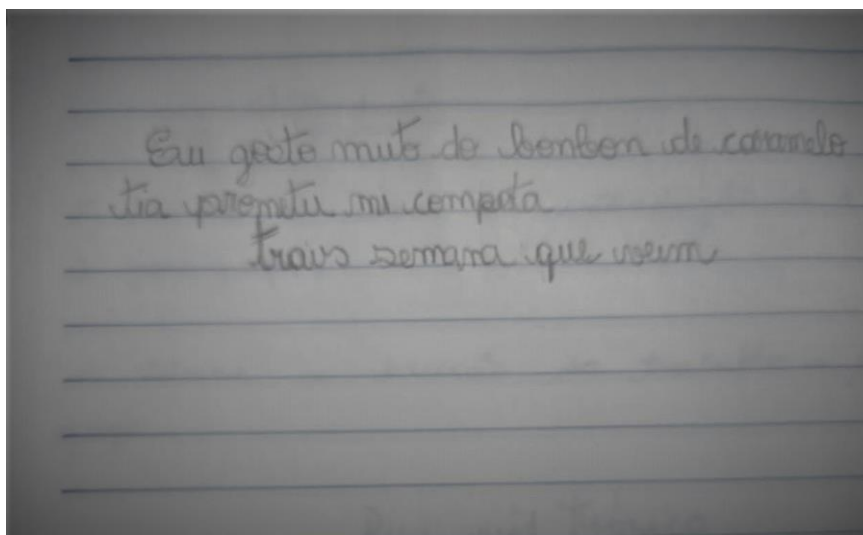 Eu gosto muto de bonbon de caramelo
tia prometu mi compota
travs semana que veim